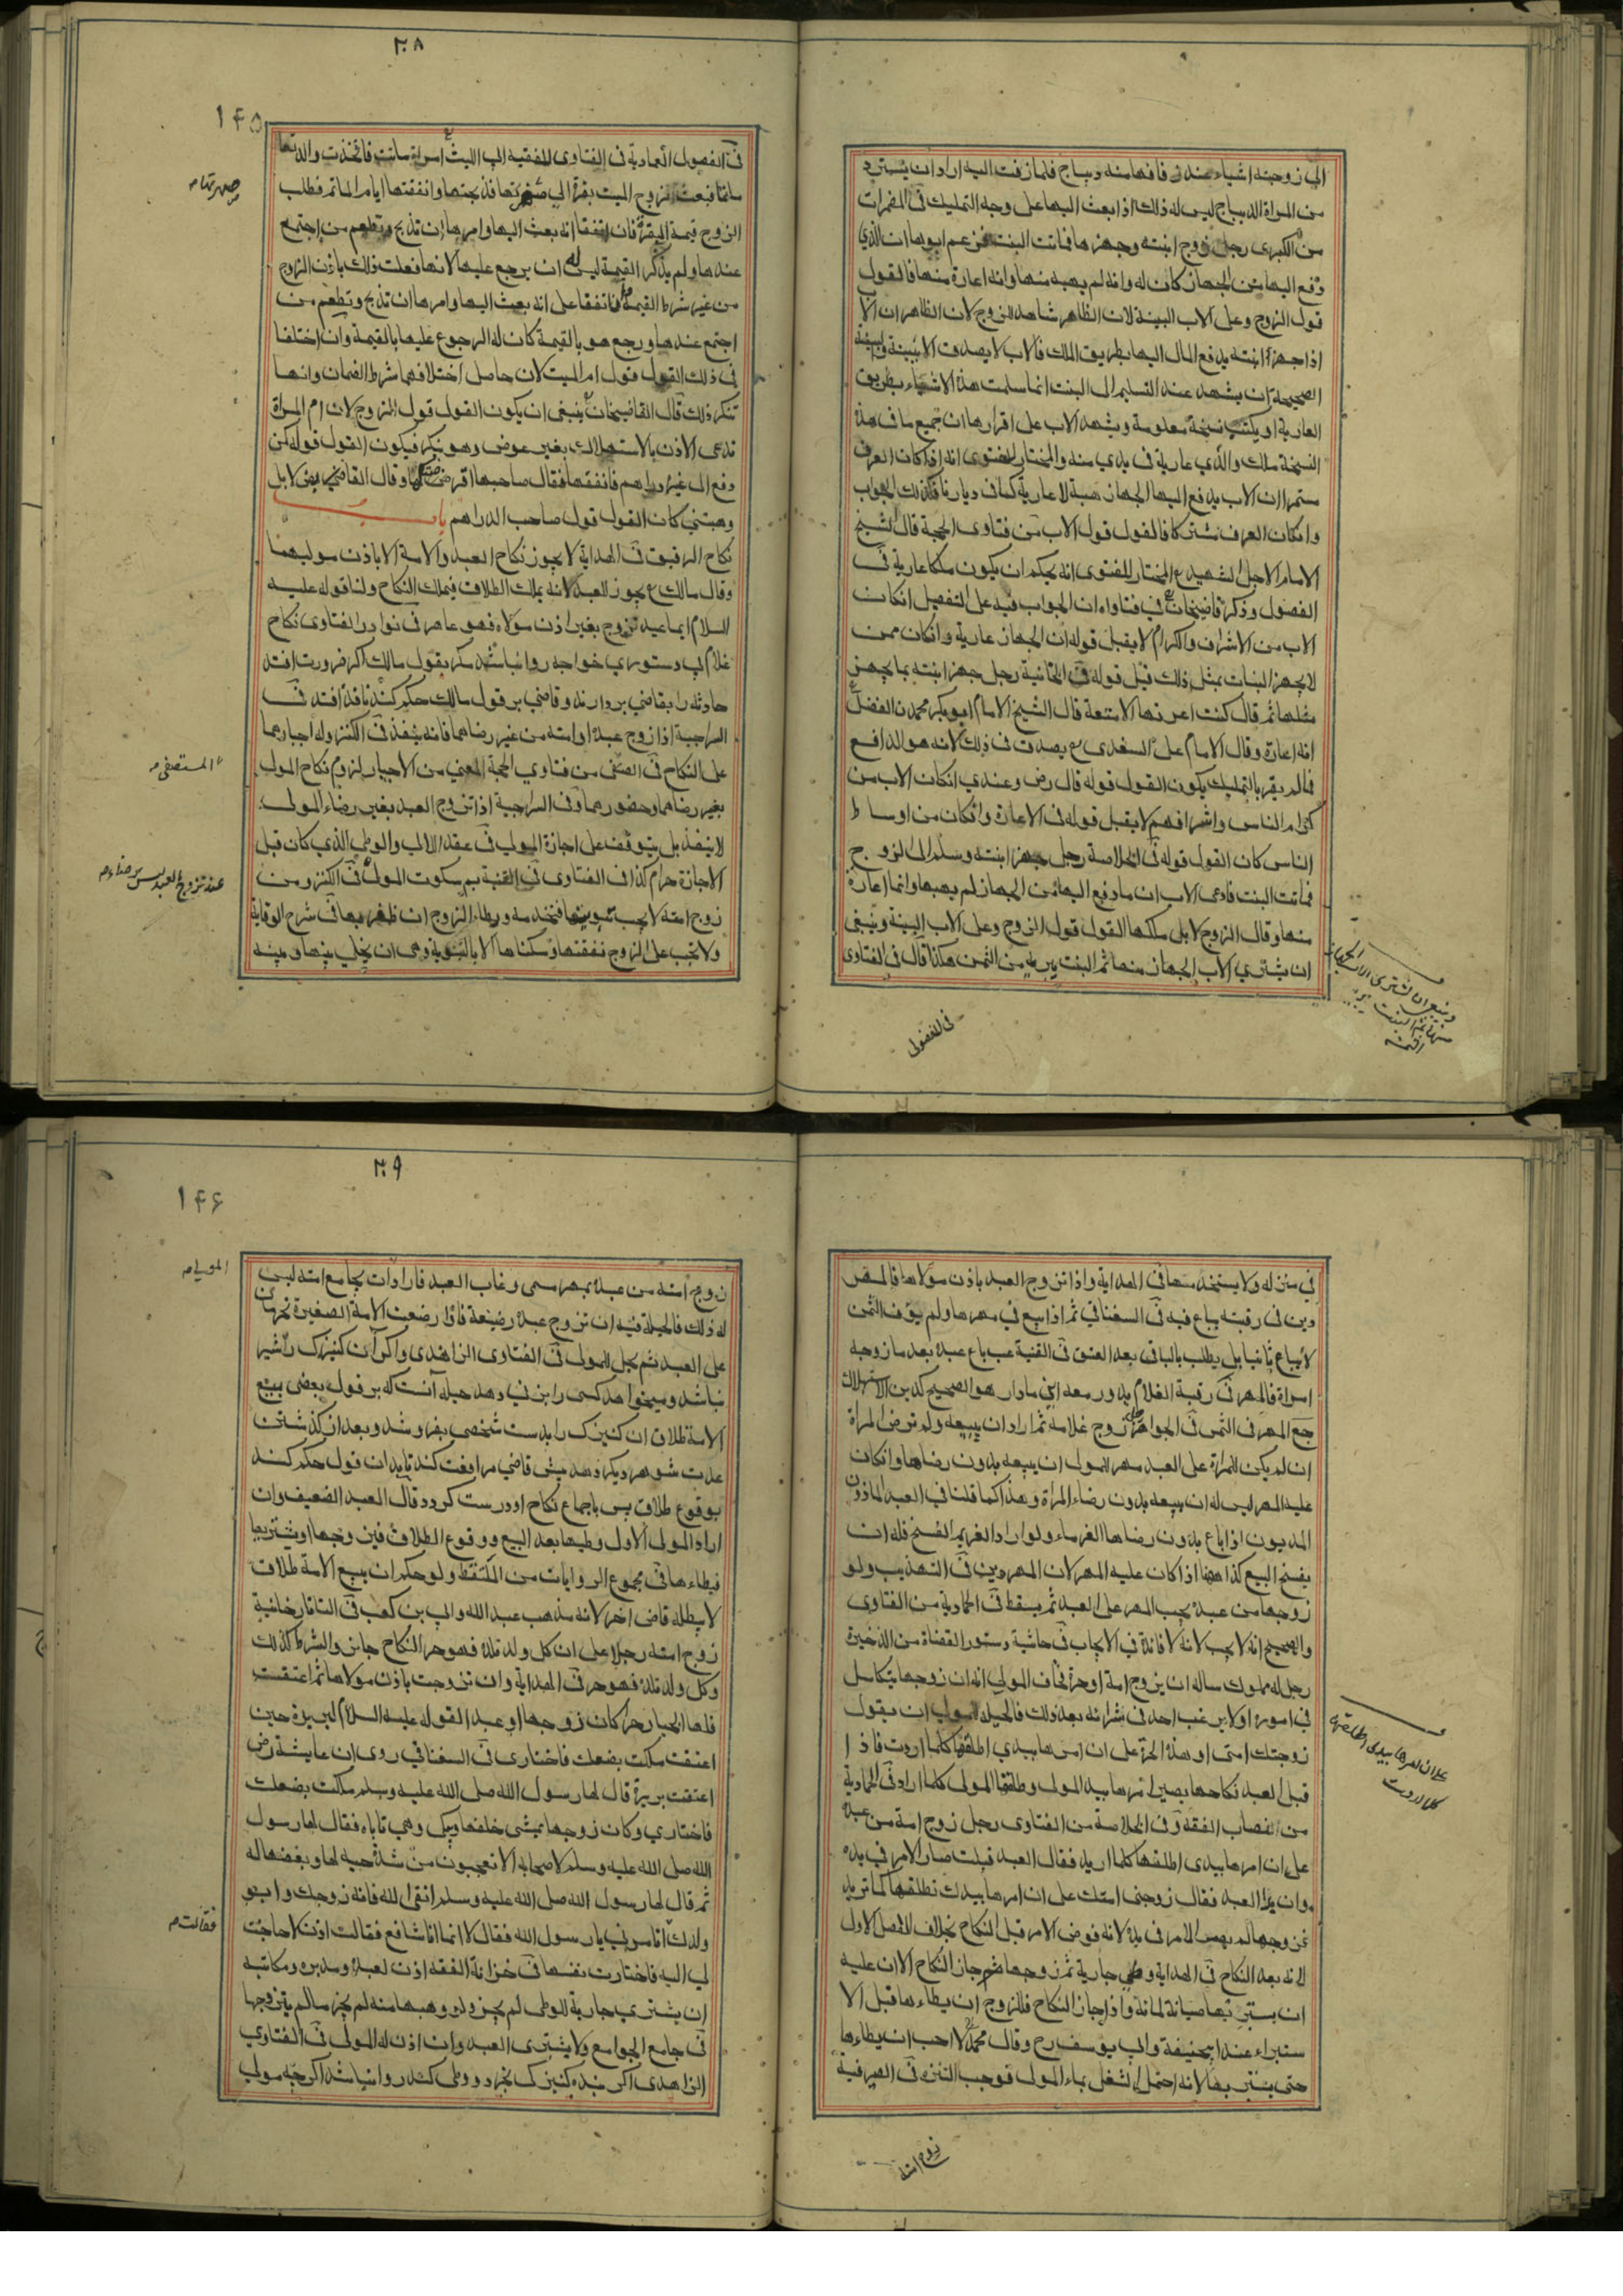 الي زوجته اشياء عند زفافها منه ديباج فلما زفت اليه اراد ان يسترد
من المراة الديباج ليس له ذلك اذا بعث اليها على وجه التمليك في المضمرات
من الكبرى رجل زوج ابنته وجهزها فماتت البنت فزعم ابوها ان الذي
دفع اليها من الجهاز كان له وانه لم يهبه منها وانه اعارة منها فالقول
قول الزوج وعلى الاب البينة لان الظاهر شاهد للزوج لان الظاهر ان الاب
اذا جهز ابنته يدفع المال اليها بطريق الملك فالاب لا يصدق الا ببينة والبينة
الصحيحة ان يشهد عند التسليم الى البنت انما سلمت هذه الاشياء بطريق
العارية او يكتب نسخة معلومة ويشهد الاب على اقرارها ان جميع ما في هذه
النسخة ملك والدي عارية في يدي منه والمختار للفتوى انه اذا كان العرف
مستمرا ان الاب يدفع اليها الجهاز هبة لا عارية كما في ديارنا فكذلك الجواب
وان كان العرف مشتركا فالقول قول الاب من فتاوى الحجة قال الشيخ
الامام الاجل الشهيد المختار للفتوى انه يحكم ان يكون ملكا عارية في
الفصول وذكر قاضيخان في فتاواه ان الجواب فيه على التفصيل ان كان
الاب من الاشراف والكرام لا يقبل قوله ان الجهاز عارية وان كان ممن
لا يجهز البنات بمثل ذلك قبل قوله في الخانية رجل جهز ابنته بما يجهز
مثلها ثم قال كنت اعرتها الامتعة قال الشيخ الامام ابو بكر محمد بن الفضل
انه اعارة وقال الامام على السغدى يصدق في ذلك لانه هو الدافع
فما لم يقر بالتمليك يكون القول قوله قال رض وعندي ان كان الاب من
كرام الناس واشرافهم لا يقبل قوله في الاعارة وان كان من اوساط
الناس كان القول قوله في الخلاصة رجل جهز ابنته وسلم الى الزوج
فماتت البنت فادعى الاب ان ما دفع اليها من الجهاز لم يهبها وانما اعارة
منها وقال الزوج لا بل ملكها القول قول الزوج وعلى الاب البينة وينبغي
ان يشتري الاب الجهاز منها ثم البنت يبريه من الثمن هكذا قال في الفتاوى
وينبغي ان يشترى الاب الجهاز
منها ثم البنت تبريه
من الثمن
في الفصول
٢٠٨
١٤٥
في الفصول العمادية في الفتاوى للفقيه ابي الليث امراة ماتت فاتخذت والدتها
ماتما فبعث زوج الميت بقرة الى صهرتها فذبحتها وانفقتها ايام الماتم فطلب
الزوج قيمة البقرة فان اتفقا انه بعث اليها وامرها ان تذبح وتطعم من اجتمع
عندها ولم يذكر القيمة ليس له ان يرجع عليها لانها فعلت ذلك باذن الزوج
من غير شرط القيمة وان اتفقا على انه بعث اليها وامرها ان تذبح وتطعم من
اجتمع عندها ورجع هو بالقيمة كان له الرجوع عليها بالقيمة وان اختلفا
في ذلك القول قول ام الميت لان حاصل اختلافهما شرط الضمان وانها
تنكر ذلك قال القاضيخان ينبغي ان يكون القول قول الزوج لان ام المراة
تدعى الاذن بالاستهلاك بغير عوض وهو ينكر فيكون القول قوله كمن
دفع الى غيره دراهم فانفقها فقال صاحبها اقرضتكها وقال القابض لا بل
وهبتني كان القول قول صاحب الدراهم باب
نكاح الرقيق في الهداية لا يجوز نكاح العبد والامة الا باذن موليهما
وقال مالك يجوز للعبد لانه يملك الطلاق فيملك النكاح ولنا قوله عليه
السلام ايما عبد تزوج بغير اذن مولاه فهو عاهر في نوادر الفتاوى نكاح
غلام بي دستوري خواجه روا نباشد مكر بقول مالك اكر ضرورت افتد
حادثه را بقاضي بردارند وقاضي بر قول مالك حكم كند نافذ افتد في
السراجية اذا زوج عبده او امته من غير رضاهما فانه ينفذ في الكنز وله اجبارهما
على النكاح في المصفى من فتاوي الحجة المعنى من الاجبار لزوم نكاح المولى
بغير رضاهما وحضورهما وفي السراجية اذا تزوج العبد بغير رضاء المولى
لا ينفذ بل يتوقف على اجازة المولى في عقد اللالى والوطي الذي كان قبل
الاجازة حرام كذا في الفتاوى في القنية سكوت المولى في الكنز ومن
زوج امته لا يجب تبويتها فتخدمه ويطاء الزوج ان ظفر بها في شرح الوقاية
ولا يجب على الزوج نفقتها وسكناها الا بالتبوية وهي ان يخلي بينها وبينه
صهرتها م
المستصفى م
عند تزوج العبد ليس برضاء م
في منزله ولا يستخدمها في الهداية واذا تزوج العبد باذن مولاها فالمهر
دين في رقبته يباع فيه في السغناقي ثم اذا بيع في مهرها ولم يوف الثمن
لا يباع ثانيا بل يطلب بالباقي بعد العتق في القنية عب باع عبده بعد ما زوجه
امراة فالمهر في رقبة الغلام يدور معه اين ما دار هو الصحيح كدين الاستهلاك
جع المهر في الثمن في الجواهر زوج غلامه ثم اراد ان يبيعه ولم ترض المراة
ان لم يكن للمراة على العبد مهر للمولى ان يبيعه بدون رضاها وان كان
عليه المهر ليس له ان يبيعه بدون رضاء المراة وهذا كما قلنا في العبد الماذون
المديون اذا باع بدون رضاها الغرماء ولو اراد الغريم الفسخ فله ان
يفسخ البيع كذا ههنا اذا كان عليه المهر لان المهر دين في التهذيب ولو
زوجها من عبده يجب المهر على العبد ثم يسقط في الحمادية من الفتاوى
والصحيح انه لا يجب لانه لا فائدة في الايجاب في حاشية دستور القضاة من الذخيرة
رجل له مملوك ساله ان يزوج امة او حرة فخاف المولى انه ان زوجها يتكاسل
في اموره او لا يرغب احد في شرائه بعد ذلك فالحيلة للمولى ان يقول
زوجتك امتى او هذه الحرة على ان امرها بيدي اطلقها كلما اردت فاذا
قبل العبد نكاحها يصير امرها بيد المولى وطلقها المولى كلما اراد في الحمادية
من نصاب الفقه وفي الخلاصة من الفتاوى رجل زوج امة من عبده
على ان امرها بيدى اطلقها كلما اريد فقال العبد قبلت صار الامر في يده
وان بدا العبد فقال زوجني امتك على ان امرها بيدك تطلقها كما تريد
فزوجها لم يصر الامر في يده لانه فوض الامر قبل النكاح بخلاف الفصل الاول
لانه بعد النكاح في الهداية وطي جارية ثم زوجها جاز النكاح الا ان عليه
ان يستبرئها صيانة لمائه واذا جاز النكاح فللزوج ان يطاءها قبل الا
ستبراء عند ابيحنيفة وابي يوسف رح وقال محمد لا احب ان يطاءها
حتى يستبريها لانه احتمل الشغل بماء المولى فوجب التنزه في الصيرفية
على ان امرها بيدى اطلقها
كلما اردت
زوج امته
٢٠٩
١٤٦
زوج امته من عبده بمهر مسمى وغاب العبد فاراد ان يجامع امته ليس
له ذلك فالحيلة فيه ان تزوج عبده رضيعة فاذا رضعت الامة الصغيرة تحرمان
على العبد ثم يحل للمولى في الفتاوى الزاهدى واكر آن كنيزك را شير
نباشد وميخواهد كسى را بزني دهد حيله آنست كه بر قول بعضى ببيع
الامة طلاق ان كنيزك را بدست شخصى بفروشد وبعد از كذشتن
عدت شوهر ديكر دهد پيش قاضي مرافعت كند تا بدان قول حكم كند
بوقوع طلاق پس باجماع نكاح او درست كردد قال العبد الضعيف وان
اراد المولى الاول وطيها بعد البيع ووقوع الطلاق فيزوجها او يشتريها
فيطاءها في مجموع الروايات من الملتقط ولو حكم ان بيع الامة طلاق
لا يبطله قاض اخر لانه مذهب عبد الله وابي بن كعب في التاتارخانية
زوج امته رجلا على ان كل ولد تلده فهو حر النكاح جائز والشرط كذلك
وكل ولد تلده فهو حر في الهداية وان تزوجت باذن مولاها ثم اعتقت
فلها الخيار حرا كان زوجها او عبدا لقوله عليه السلام لبريرة حين
اعتقت ملكت بضعك فاختارى في السغناقي روى ان عايشة رض
اعتقت بريرة قال لها رسول الله صلى الله عليه وسلم ملكت بضعك
فاختاري وكان زوجها يمشى خلفها ويبكي وهي تاباه فقال لها رسول
الله صلى الله عليه وسلم لاصحابه الا تعجبون من شدة حبه لها وبغضها له
ثم قال لها رسول الله صلى الله عليه وسلم اتقى الله فانه زوجك وابو
ولدك اتامرني يا رسول الله فقال لا انما انا شافع فقالت اذن لا حاجة
لي اليه فاختارت نفسها في خزانة الفقه اذن لعبده ومدبره ومكاتبه
ان يشتري جارية للوطى لم يجز ولو وهبها منه لم يجز ما لم يتزوجها
في جامع الجوامع ولا يشترى العبد وان اذن له المولى في الفتاوي
الزاهدى اكر بنده كنيزكى بخرد ووطى كند روا نباشد اكرچه مولى
المولى م
فقالت م